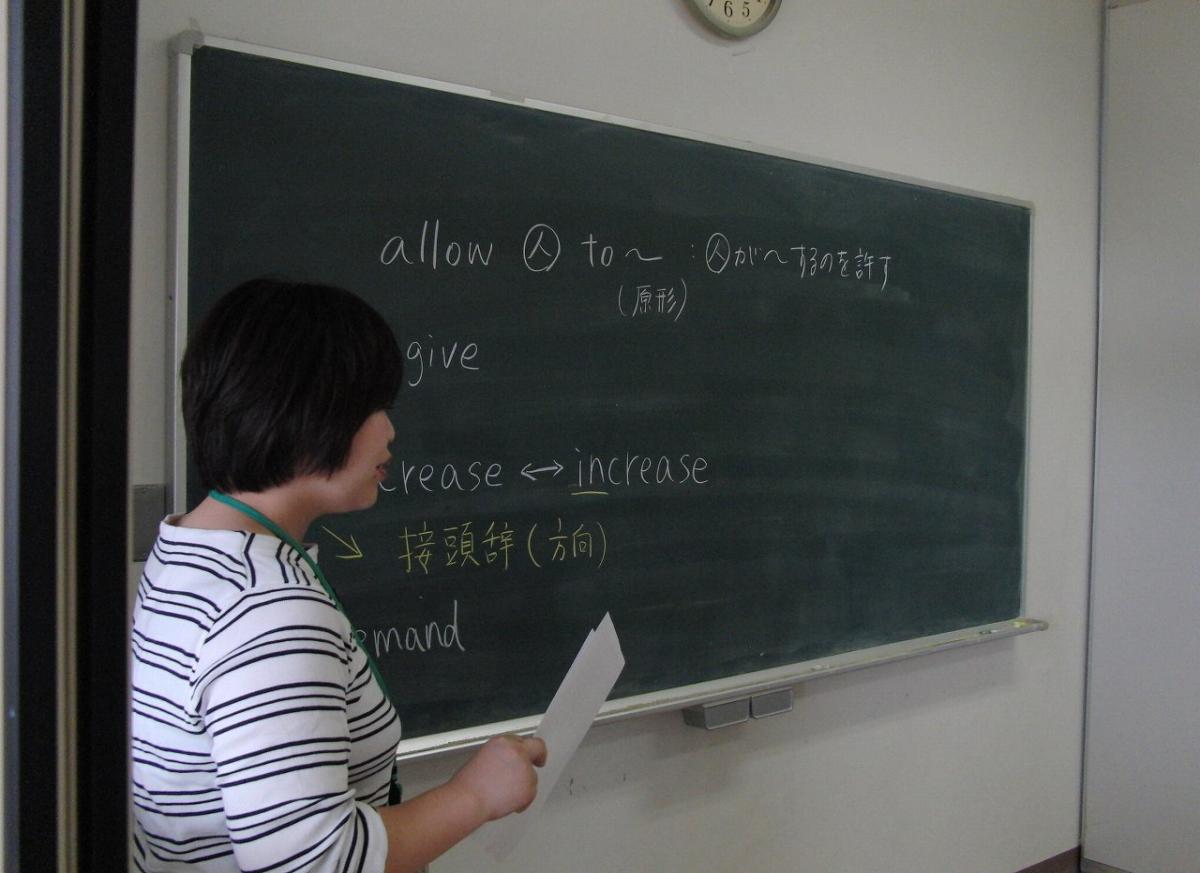 6 5
allow ㊅ to ~ : ㊅が~するのを許す
(原形)
give
crease ↔ increase
↘ 接頭辞 (方向)
emand